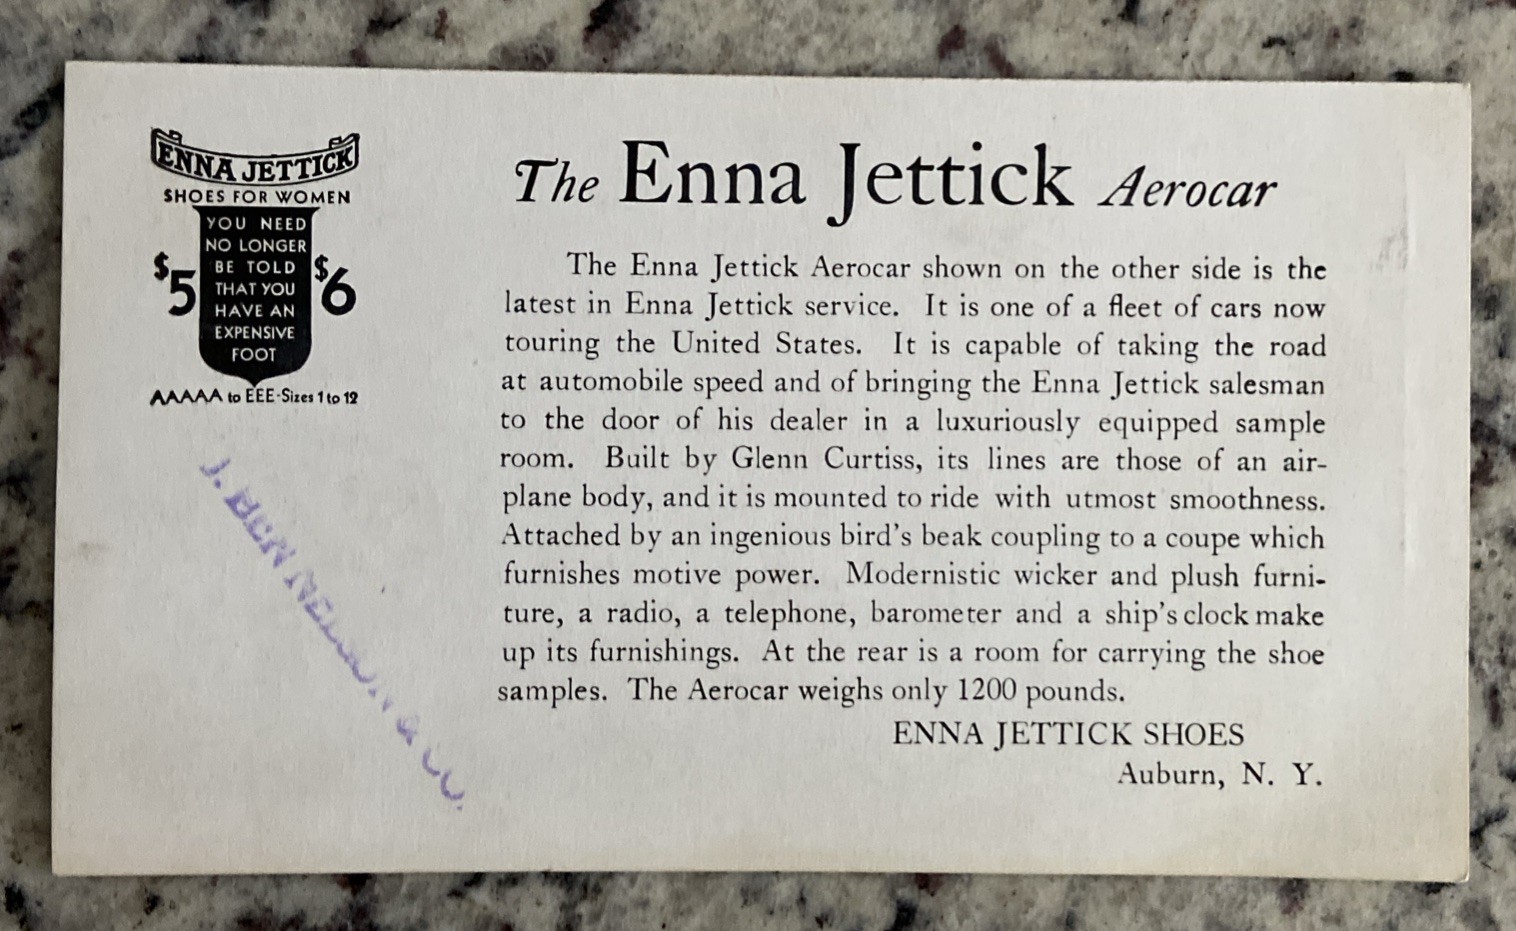 ENNA JETTICK
SHOES FOR WOMEN
YOU NEED
NO LONGER
BE TOLD
THAT YOU
HAVE AN
EXPENSIVE
FOOT
$5
$6
AAAAA to EEE-Sizes 1 to 12
J. BEN NELSON & CO.
The Enna Jettick Aerocar
The Enna Jettick Aerocar shown on the other side is the
latest in Enna Jettick service. It is one of a fleet of cars now
touring the United States. It is capable of taking the road
at automobile speed and of bringing the Enna Jettick salesman
to the door of his dealer in a luxuriously equipped sample
room. Built by Glenn Curtiss, its lines are those of an air-
plane body, and it is mounted to ride with utmost smoothness.
Attached by an ingenious bird's beak coupling to a coupe which
furnishes motive power. Modernistic wicker and plush furni-
ture, a radio, a telephone, barometer and a ship's clock make
up its furnishings. At the rear is a room for carrying the shoe
samples. The Aerocar weighs only 1200 pounds.
ENNA JETTICK SHOES
Auburn, N. Y.